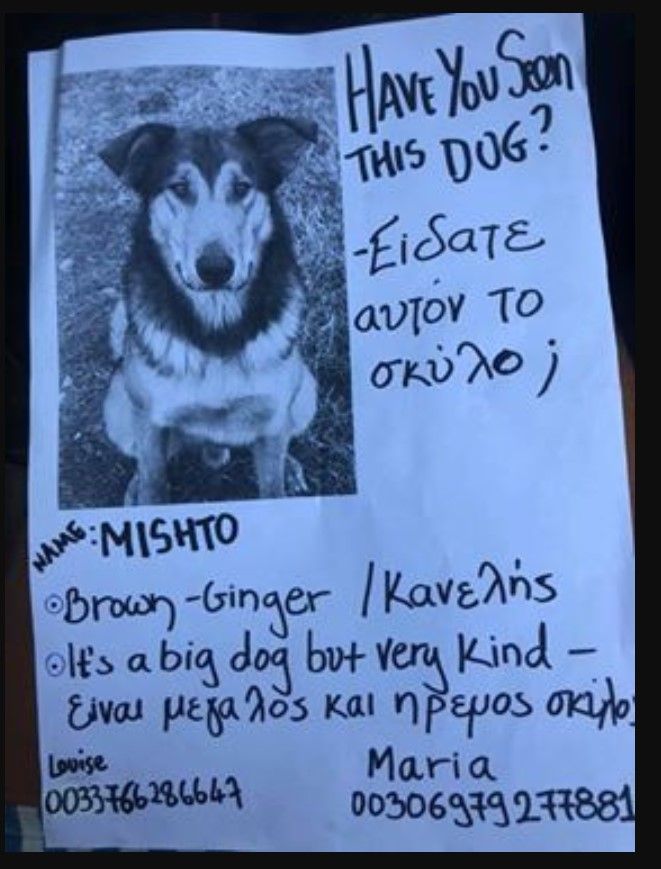 HAVE YOU Seen
THIS DOG?
-Είδατε
αυτόν το
σκύλο;
NAME: MISHTO
Brown-Ginger / Κανελής
It's a big dog but very kind –
Είναι μεγαλος και ηρεμος σκύλος
Louise
0033766286647
Maria
00306979277881